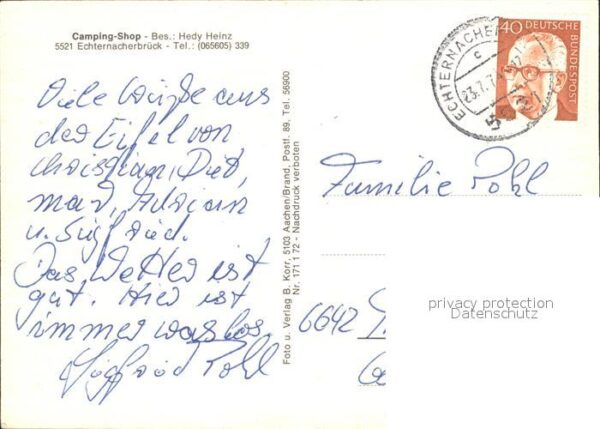 Camping-Shop - Bes.: Hedy Heinz
5521 Echternacherbrück - Tel.: (065605) 339
Viele Grüße aus
der Eifel von,
Christian, Diet,
mar, Adrian
u. Sigfried.
Das Wetter ist
gut. Hier ist
immer was los.
Sigfried Pohl
Foto u. Verlag B. Korr, 5103 Aachen/Brand, Postf. 89, Tel. 56900
Nr. 171 1 72 - Nachdruck verboten
40 DEUTSCHE
BUNDESPOST
23.7.7
Familie Pohl
6642
privacy protection
Datenschutz